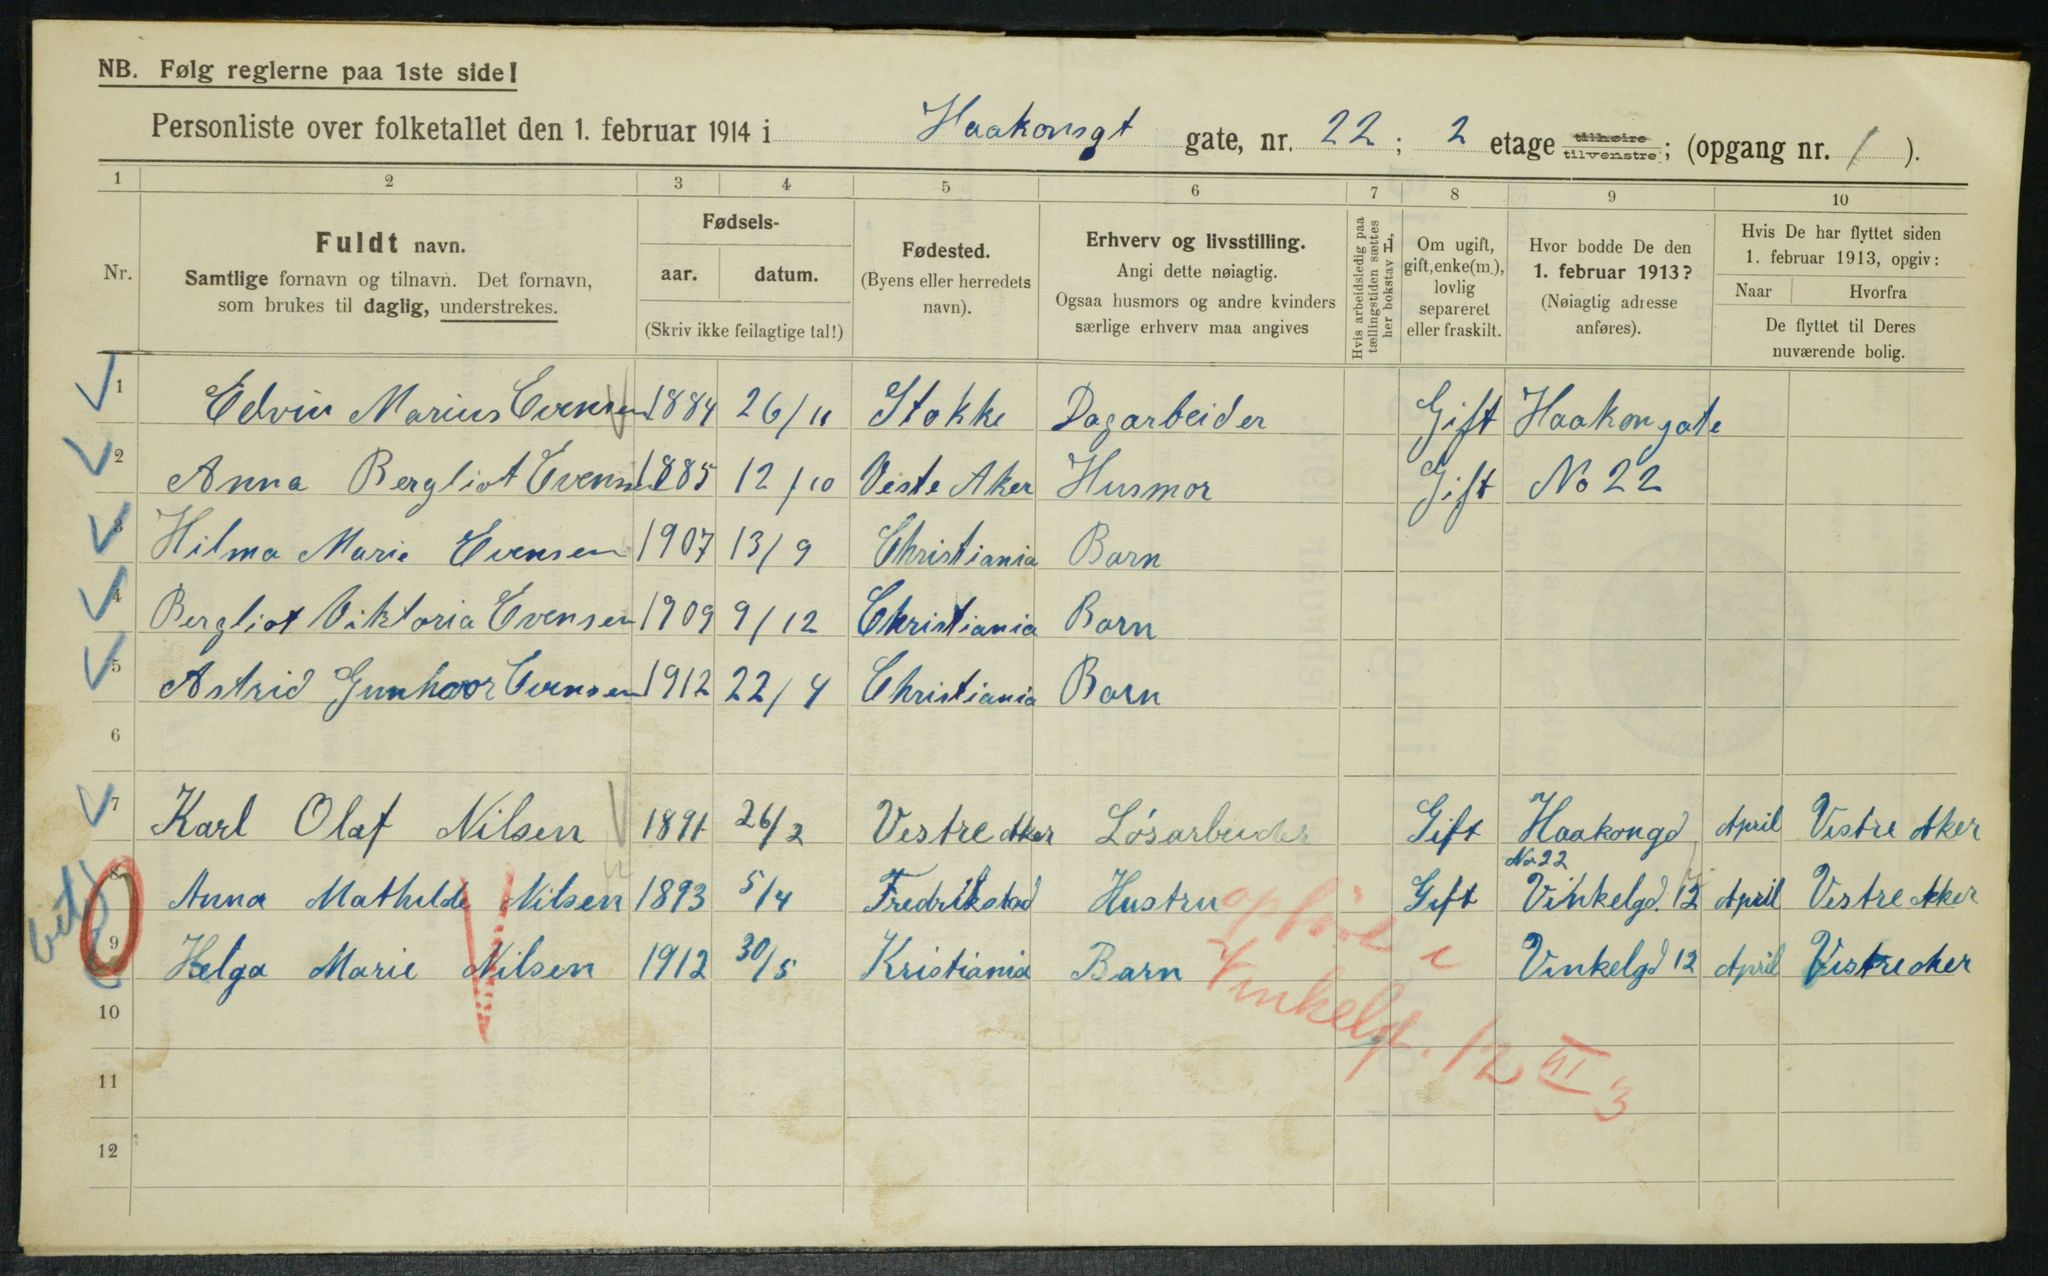 NB. Følg reglerne paa 1ste side!
Personliste over folketallet den 1. februar 1914 i Haakonsgt gate, nr. 22; 2 etage tilhøire tilvenstre; (opgang nr. 1).
1 2 3 4 5 6 7 8 9 10
Nr.
Fuldt navn.
Samtlige fornavn og tilnavn. Det fornavn,
som brukes til daglig, understrekes.
Fødsels-
aar. datum.
(Skriv ikke feilagtige tal!)
Fødested.
(Byens eller herredets
navn).
Erhverv og livsstilling.
Angi dette nøiagtig.
Ogsaa husmors og andre kvinders
særlige erhverv maa angives
Hvis arbeidsledig paa
tællingstiden sættes
her bokstav L,
Om ugift,
gift, enke(m.),
lovlig
separeret
eller fraskilt.
Hvor bodde De den
1. februar 1913?
(Nøiagtig adresse
anføres).
Hvis De har flyttet siden
1. februar 1913, opgiv:
Naar Hvorfra
De flyttet til Deres
nuværende bolig.
1 Edvin Marius Evensen 1884 26/11 Stokke Dagarbeider Gift Haakongate
2 Anna Bergliot Evensen 1885 12/10 Veste Aker Husmor Gift No 22
3 Hilma Marie Evensen 1907 13/9 Christiania Barn
4 Bergliot Viktoria Evensen 1909 9/12 Christiania Barn
5 Astrid Gunhoor Evensen 1912 22/4 Christiania Barn
6
7 Karl Olaf Nilsen 1891 26/2 Vestre Aker Løsarbeider Gift Haakongd April Vestre Aker
No 22
8 Anna Mathilde Nilsen 1893 5/4 Fredrikstad Hustru Gift Vinkelgd. 12 April Vestre Aker
9 Helga Marie Nilsen 1912 30/5 Kristiania Barn Vinkelgd 12 April Vestre Aker
opført i
Vinkelgt. 12 VI 3
10
11
12